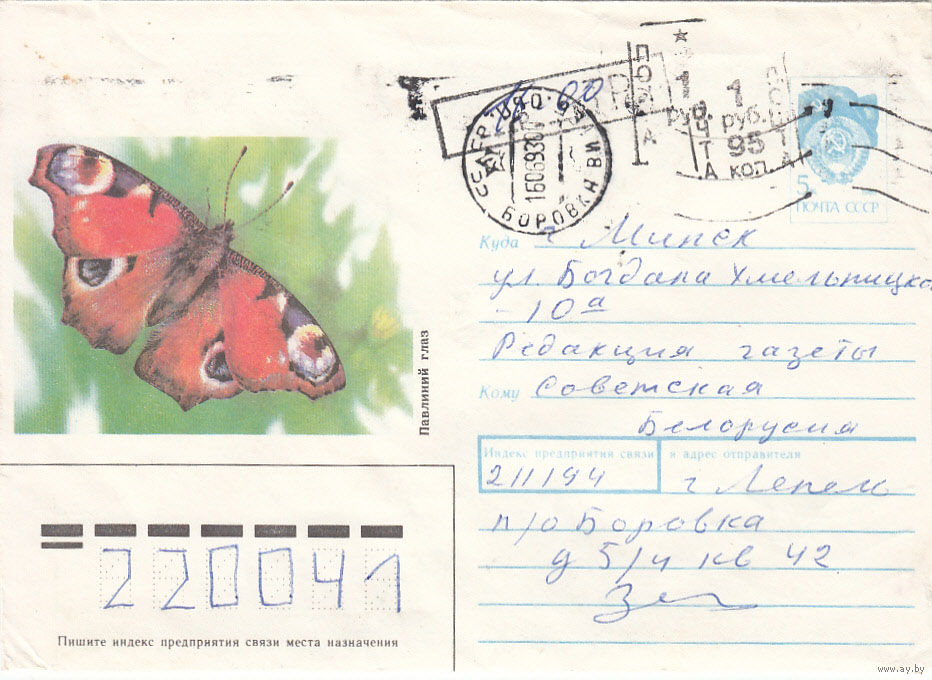 ПОЧТА
1 руб.
1 руб.
95 коп.
СССР
БОРОВКА
5
ПОЧТА СССР
Куда г Минск
ул. Богдана Хмельницко
-10а
Редакция газеты
Кому Советская
Белорусия
Павлиний глаз
Индекс предприятия связи и адрес отправителя
211194 г Лепель
п/о Боровка
д 5/4 кв 42
220041
Пишите индекс предприятия связи места назначения
www.ay.by